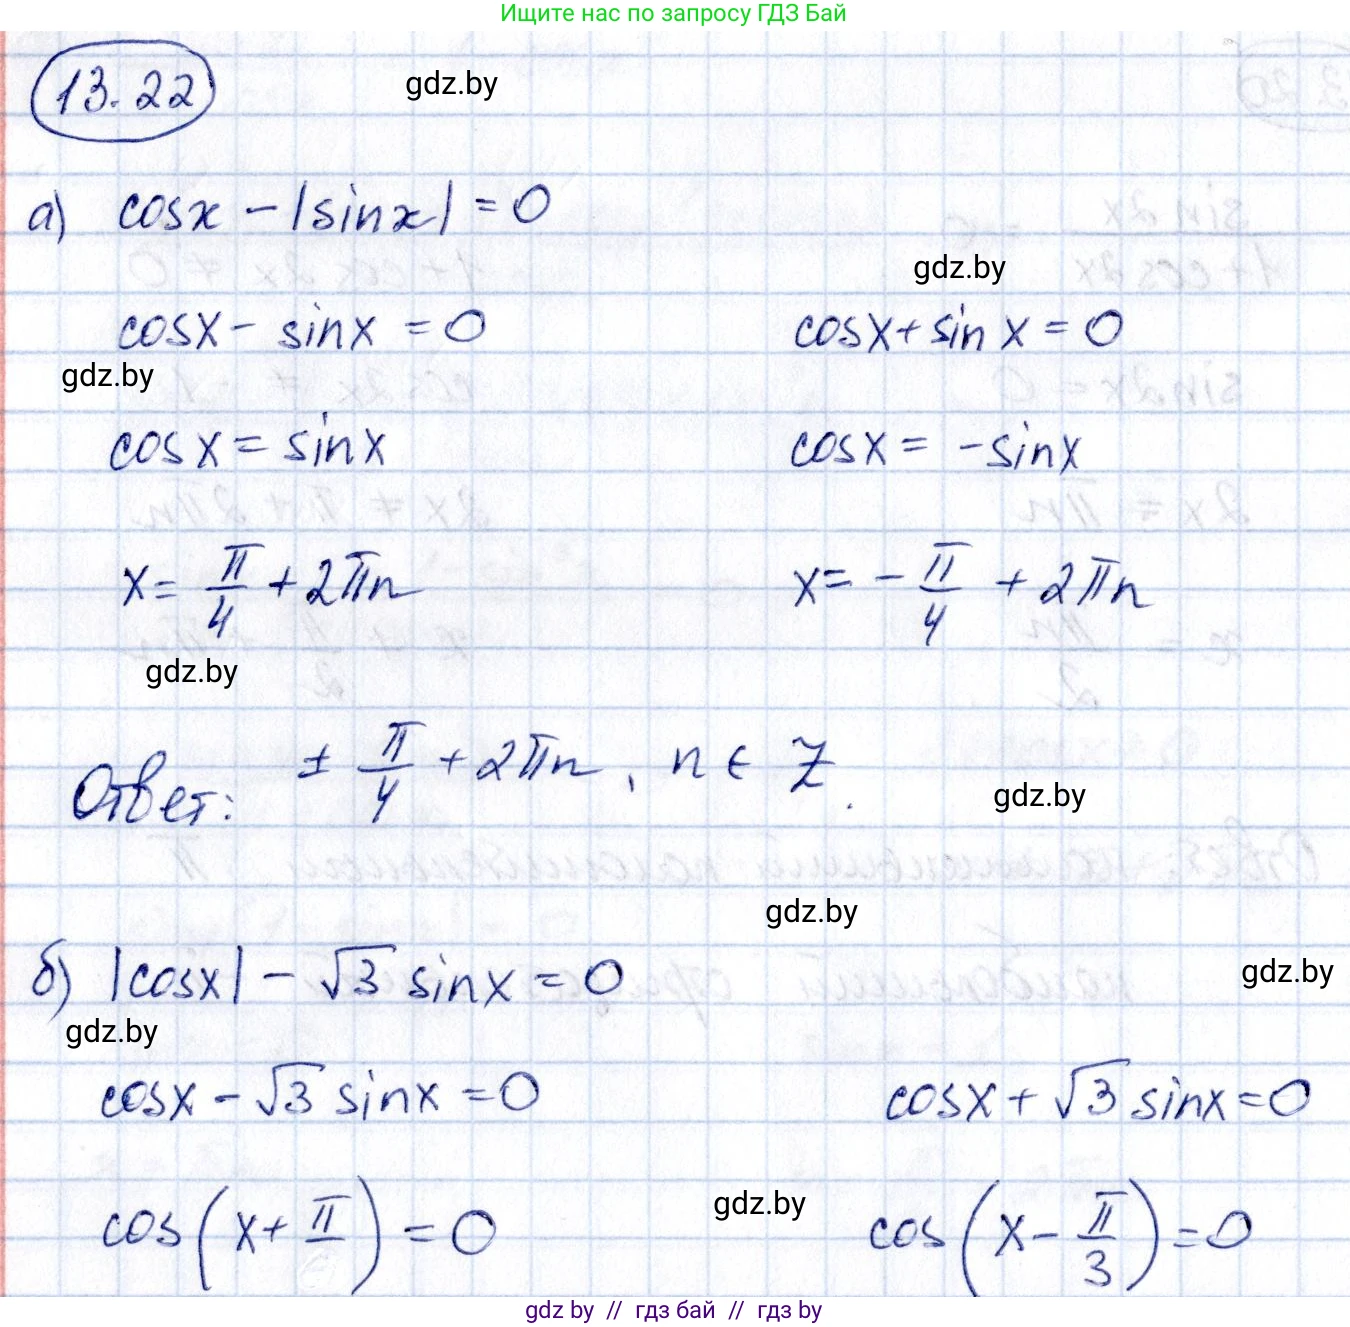 Ищите нас по запросу ГДЗ Бай
13.22
gdz.by
а) cosx - |sinx| = 0
gdz.by
cosx - sinx = 0    cosx + sinx = 0
gdz.by
cosx = sinx    cosx = -sinx
x = π/4 + 2πn    x = -π/4 + 2πn
gdz.by
Ответ: ± π/4 + 2πn, n ∈ Z.
gdz.by
gdz.by
б) |cosx| - √3 sinx = 0
gdz.by
gdz.by
cosx - √3 sinx = 0    cosx + √3 sinx = 0
gdz.by
cos(x + π/ ) = 0    cos(x - π/3) = 0
gdz.by // гдз бай // гдз by